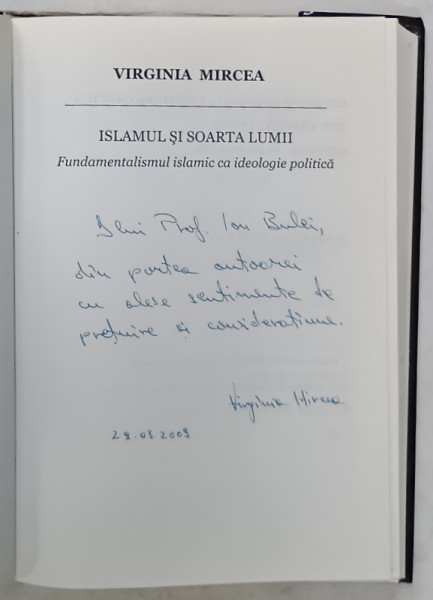 VIRGINIA MIRCEA
ISLAMUL ŞI SOARTA LUMII
Fundamentalismul islamic ca ideologie politică
Dlui Prof. Ion Bulei,
din partea autoarei
cu alese sentimente de
preţuire şi consideraţiune.
Virginia Mircea
29.01.2009